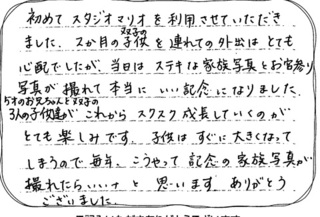 初めてスタジオマリオを利用させていただき
ました。2か月の双子の子供を連れての外出はとても
心配でしたが、当日はステキな家族写真とお宮参り
写真が撮れて本当にいい記念になりました。
5才のお兄ちゃんと双子の
3人の子供達がこれからスクスク成長していくのが
とても楽しみです。子供はすぐに大きくなって
しまうので毎年、こうやって記念の家族写真が
撮れたらいいナと思います。ありがとう
ございました。